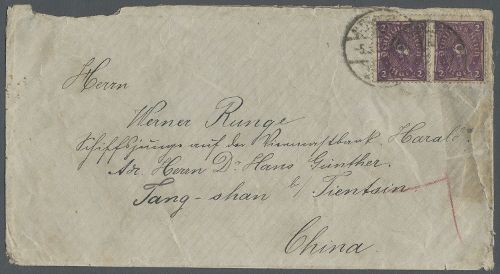 Herrn
Werner Runge
Schiffsjunge auf der Viermastbark "Harald"
Adr. Herrn Dr Hans Günther.
Tang-shan b/ Tientsin
China.
2 2 2 2